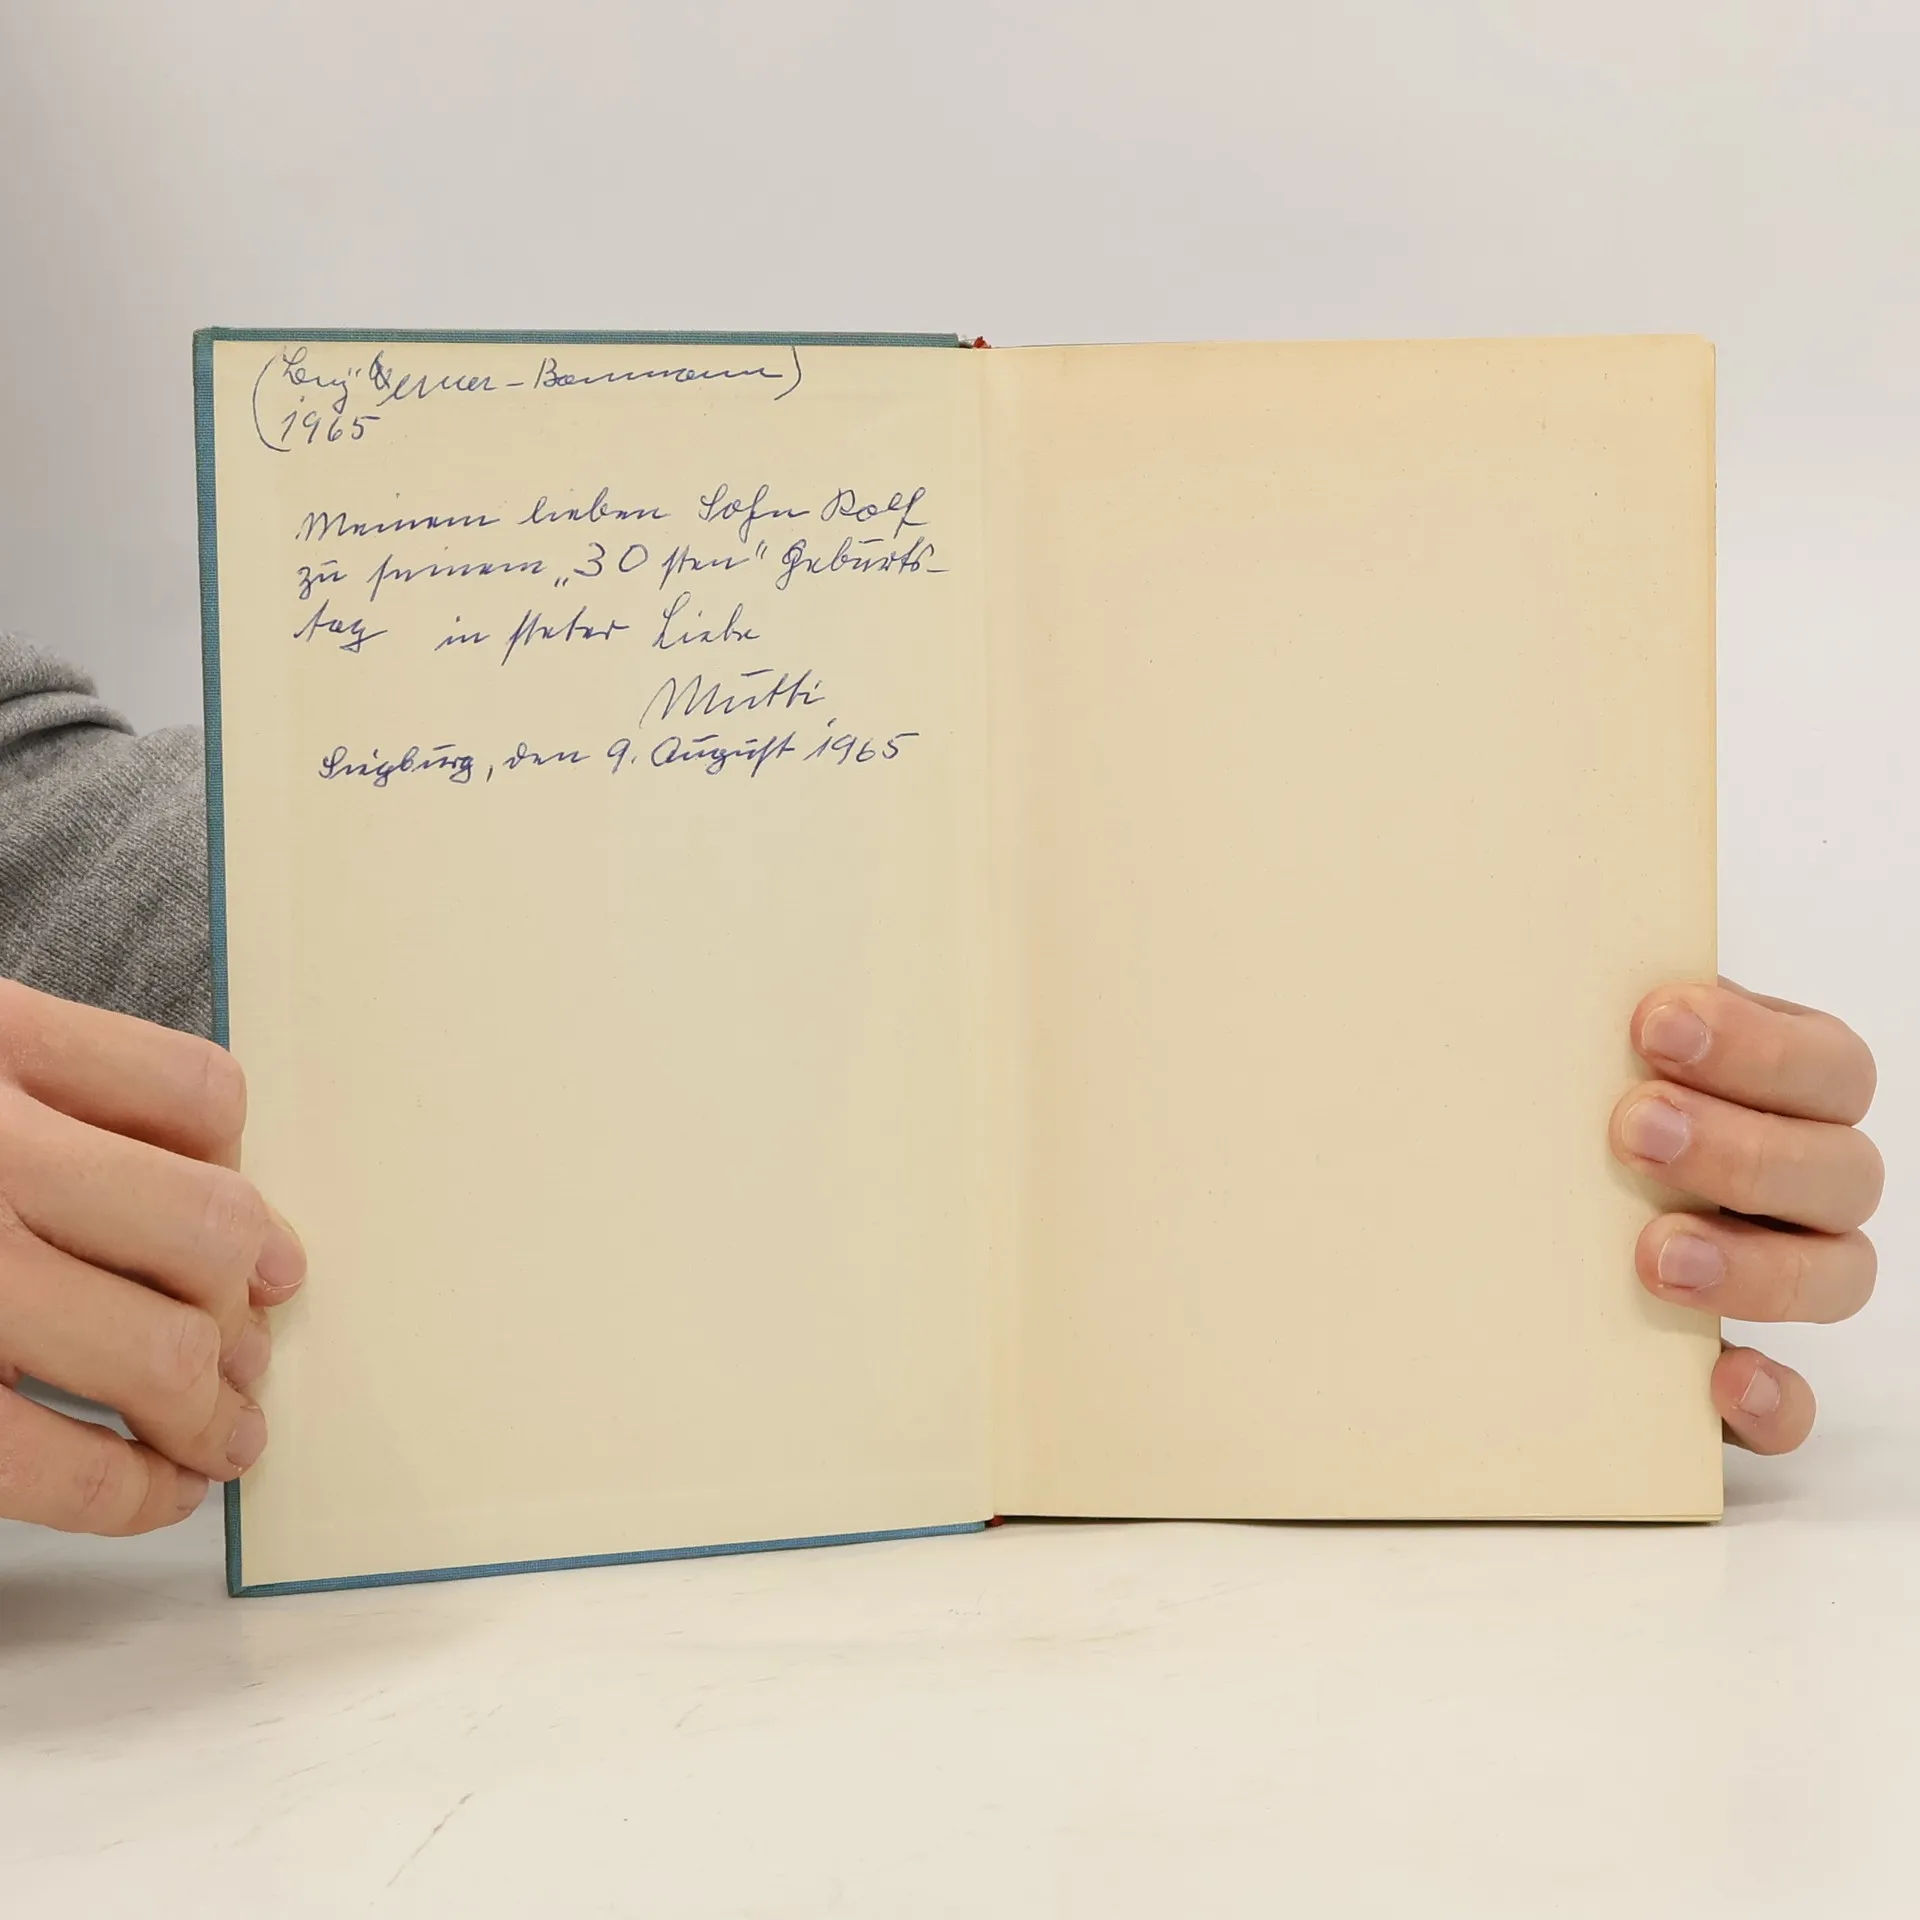 Werner - Bornmann)
(1965
Meinem lieben Sohn Rolf
zu seinem „30sten“ Geburts-
tag in steter Liebe
Mutti,
Siegburg, den 9. August 1965